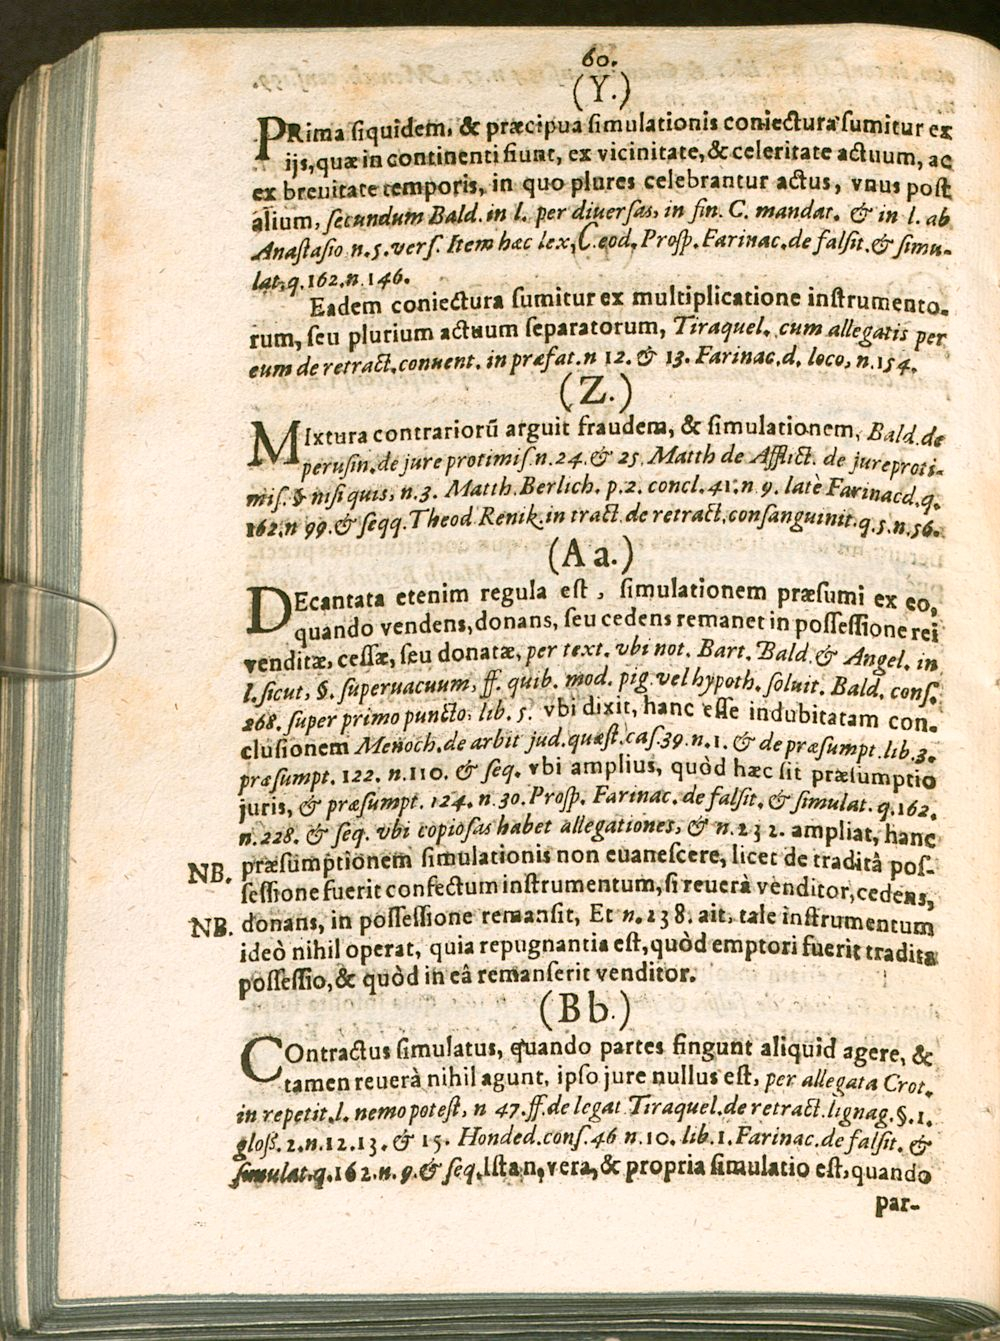 60.
(Y.)
PRima siquidem, & præcipua simulationis coniectura sumitur ex
ijs, quæ in continenti fiunt, ex vicinitate, & celeritate actuum, ac
ex breuitate temporis, in quo plures celebrantur actus, vnus post
alium, secundum Bald. in l. per diuersas, in fin. C. mandat. & in l. ab
Anastasio n. 5. vers. Item hæc lex, C. eod. Prosp. Farinac. de falsit. & simu-
lat. q. 162. n. 146.
Eadem coniectura sumitur ex multiplicatione instrumento-
rum, seu plurium actuum separatorum, Tiraquel. cum allegatis per
eum de retract. conuent. in præfat. n 12. & 13. Farinac. d. loco, n. 154.
(Z.)
MIxtura contrariorũ arguit fraudem, & simulationem, Bald. de
perusin. de jure protimis. n. 24. & 25. Matth de Afflict. de jure proti-
mis. § nisi quis, n. 3. Matth. Berlich. p. 2. concl. 41. n 9. latè Farinac d. q.
162. n 99. & seqq. Theod. Renik. in tract. de retract. consanguinit. q. 5. n. 56.
(Aa.)
DEcantata etenim regula est, simulationem præsumi ex eo,
quando vendens, donans, seu cedens remanet in possessione rei
venditæ, cessæ, seu donatæ, per text. vbi not. Bart. Bald. & Angel. in
l. sicut, §. superuacuum, ff. quib. mod. pig. vel hypoth. soluit. Bald. cons.
268. super primo puncto, lib. 5. vbi dixit, hanc esse indubitatam con-
clusionem Menoch. de arbit jud. quæst. cas. 39. n. 1. & de præsumpt. lib. 3.
præsumpt. 122. n. 110. & seq. vbi amplius, quòd hæc sit præsumptio
juris, & præsumpt. 124. n. 30. Prosp. Farinac. de falsit. & simulat. q. 162.
n. 228. & seq. vbi copiosas habet allegationes, & n. 232. ampliat, hanc
NB. præsumptionem simulationis non euanescere, licet de traditâ pos-
sessione fuerit confectum instrumentum, si reuerà venditor, cedens,
NB. donans, in possessione remansit, Et n. 238. ait, tale instrumentum
ideò nihil operat, quia repugnantia est, quòd emptori fuerit tradita
possessio, & quòd in eâ remanserit venditor.
(Bb.)
COntractus simulatus, quando partes fingunt aliquid agere, &
tamen reuerà nihil agunt, ipso jure nullus est, per allegata Crot.
in repetit. l. nemo potest, n 47. ff. de legat Tiraquel. de retract. lignag. §. 1.
gloß. 2. n. 12. 13. & 15. Honded. cons. 46 n. 10. lib. 1. Farinac. de falsit. &
simulat. q. 162. n. 9. & seq. Istan, vera, & propria simulatio est, quando
par-